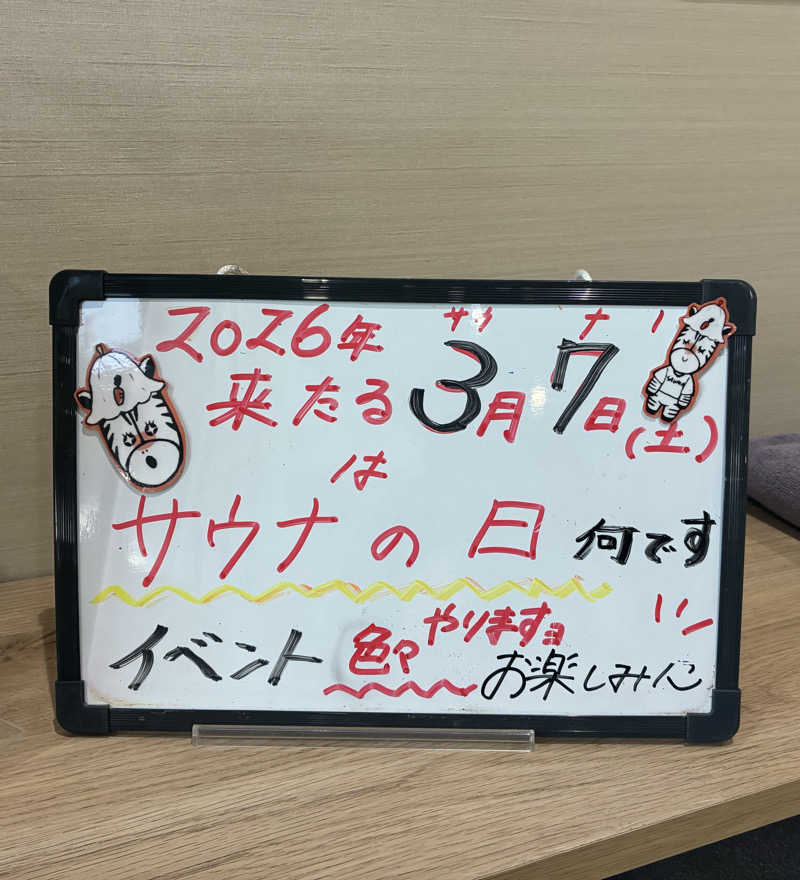 2026年
サウ ナ !
来たる3月7日(土)
は
サウナの日 何です
イベント 色々 やりますョ !!
お楽しみに